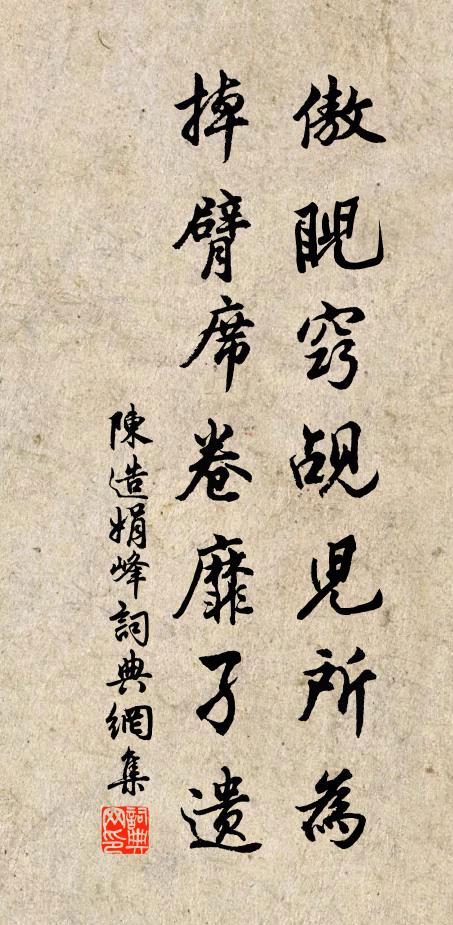 傲睨窮覘児所為
掉臂席卷靡孑遺
陳造娟峰詞典網集
詞典網印